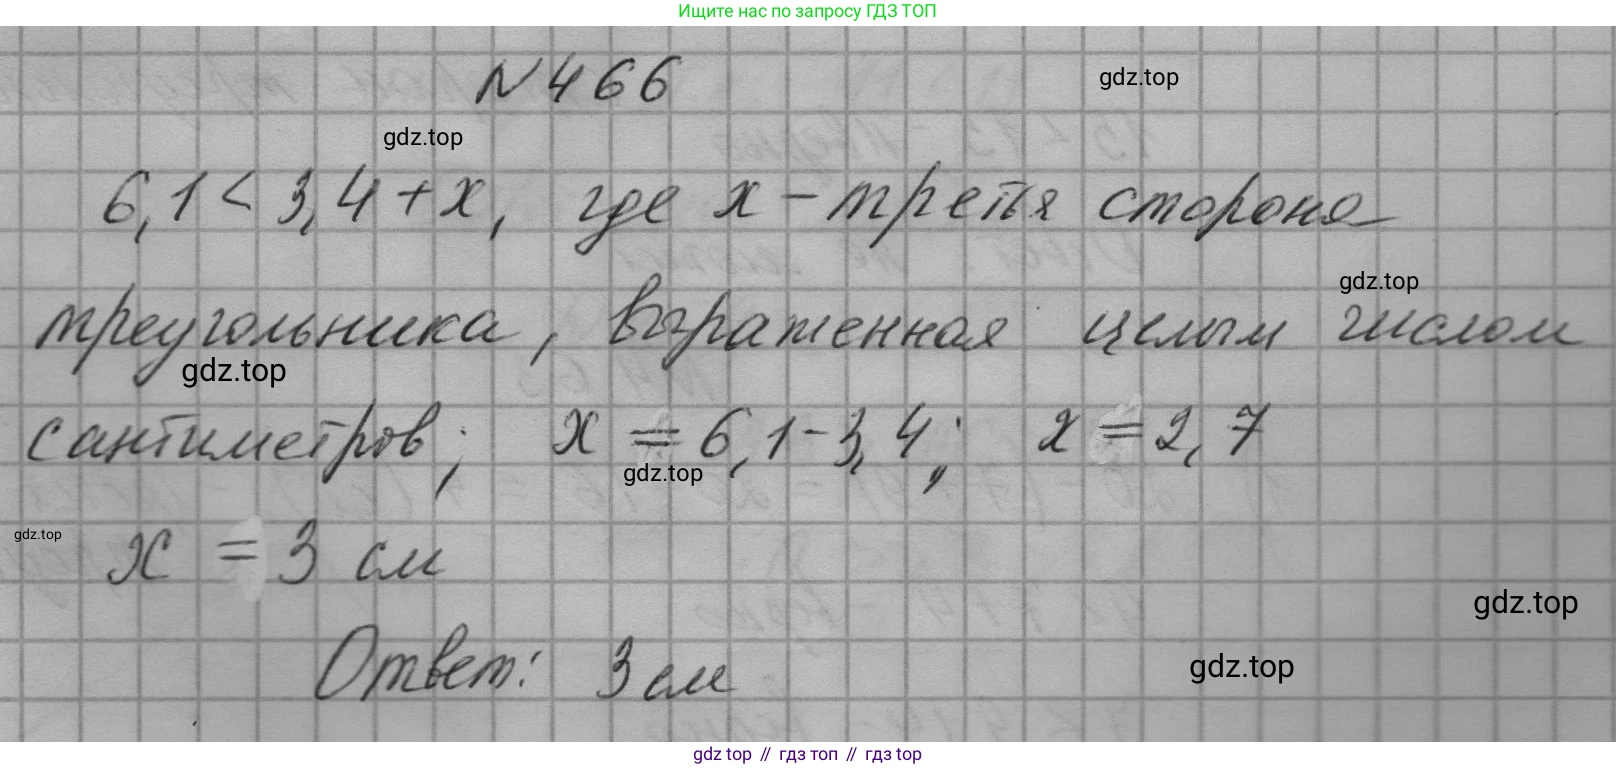 Ищите нас по запросу ГДЗ ТОП
N 466
gdz.top
gdz.top
6,1 < 3,4 + x, где x - третья сторона
gdz.top
треугольника, выраженная целым числом
gdz.top
сантиметров; x = 6,1 - 3,4; x = 2,7
gdz.top
gdz.top
x = 3 см
gdz.top
Ответ: 3 см
gdz.top
gdz top // гдз топ // гдз top